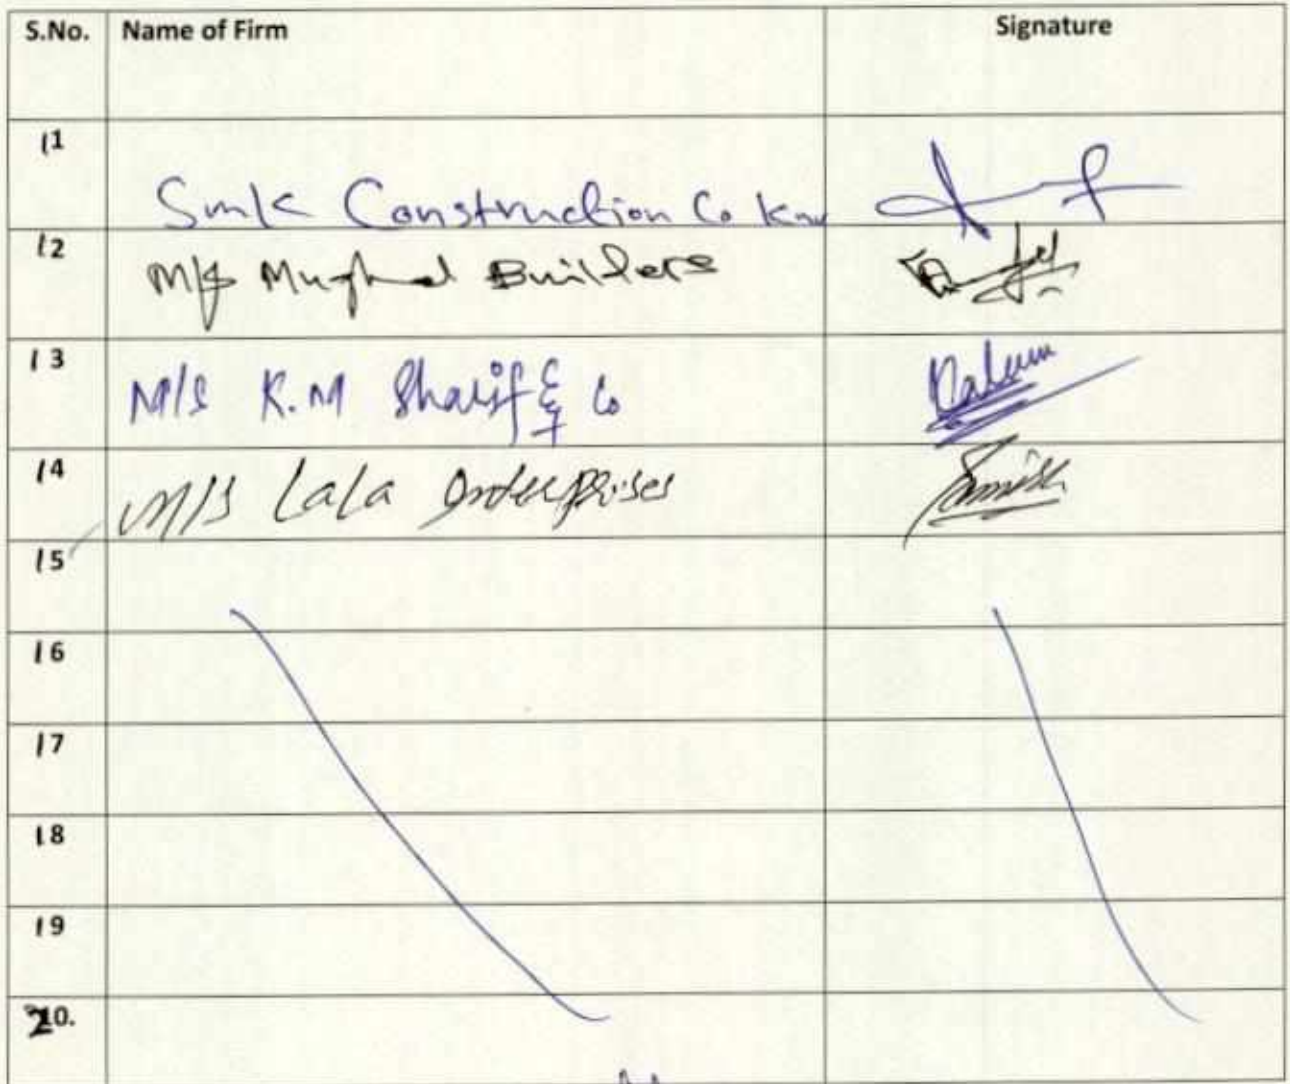 S.No. Name of Firm Signature
11
Smk Construction Co
12 M/s Mughal Builders
13 M/s K.M Sharif & Co
14 M/s Lala Enterprises
15
16
17
18
19
20.